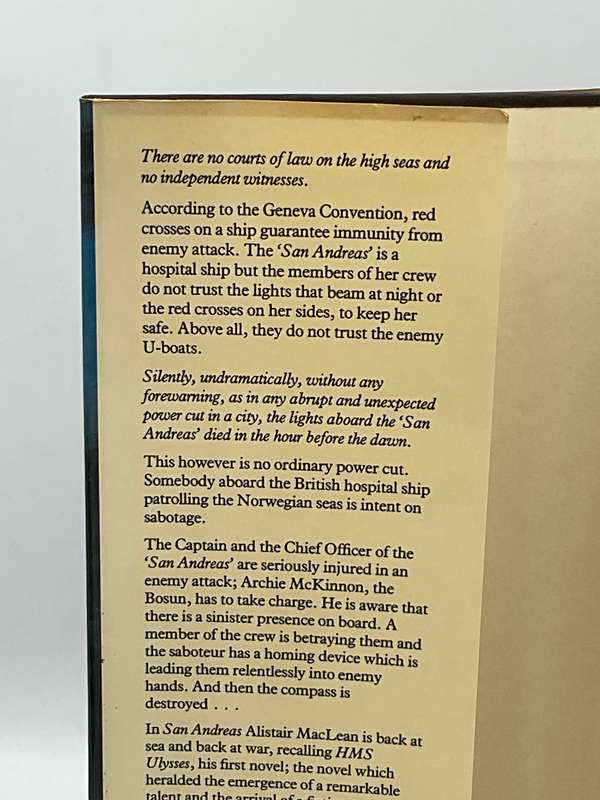 There are no courts of law on the high seas and
no independent witnesses.
According to the Geneva Convention, red
crosses on a ship guarantee immunity from
enemy attack. The ‘San Andreas’ is a
hospital ship but the members of her crew
do not trust the lights that beam at night or
the red crosses on her sides, to keep her
safe. Above all, they do not trust the enemy
U-boats.
Silently, undramatically, without any
forewarning, as in any abrupt and unexpected
power cut in a city, the lights aboard the ‘San
Andreas’ died in the hour before the dawn.
This however is no ordinary power cut.
Somebody aboard the British hospital ship
patrolling the Norwegian seas is intent on
sabotage.
The Captain and the Chief Officer of the
‘San Andreas’ are seriously injured in an
enemy attack; Archie McKinnon, the
Bosun, has to take charge. He is aware that
there is a sinister presence on board. A
member of the crew is betraying them and
the saboteur has a homing device which is
leading them relentlessly into enemy
hands. And then the compass is
destroyed . . .
In San Andreas Alistair MacLean is back at
sea and back at war, recalling HMS
Ulysses, his first novel; the novel which
heralded the emergence of a remarkable
talent and the arrival of a